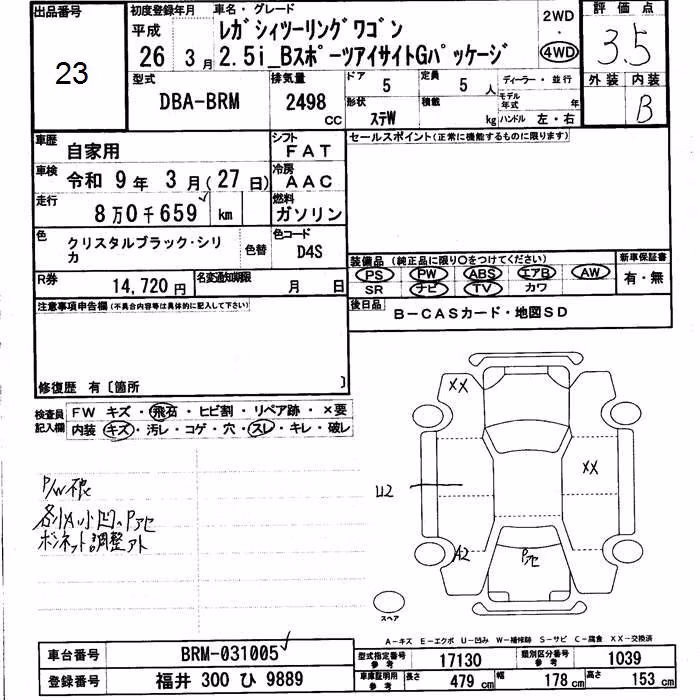 出品番号
23
初度登録年月
平成
26 3月
車名・グレード
レガシィツーリングワゴン
2.5i_BスポーツアイサイトGパッケージ
2WD
・
4WD
評価点
3.5
外装 内装
B
型式
DBA-BRM
排気量
2498
cc
ドア
5
定員
5 人
ディーラー・並行
形状
ステW
積載
kg
モデル年式 年
ハンドル 左・右
車歴
自家用
シフト
FAT
車検
令和 9年 3月(27日)
冷房
AAC
走行
8万0千659 km
燃料
ガソリン
色
クリスタルブラック・シリカ
色替
色コード
D4S
R券
14,720円
名変通知期限
月 日
セールスポイント(正常に機能するものに限ります)
装備品 (純正品に限り○をつけてください)
PS PW ABS エアB AW
SR ナビ TV カワ
新車保証書
有・無
後日品
B-CASカード・地図SD
注意事項申告欄(不具合内容等は具体的に記入して下さい)
修復歴 有〔箇所 〕
検査員記入欄
FW キズ・飛石・ヒビ割・リペア跡・×要
内装・キズ・汚レ・コゲ・穴・スレ・キレ・破レ
P/W不良
各小A小凹、Pアセ
ボンネット調整アト
XX
XX
U2
A2
Pアセ
スペア
A-キズ E-エクボ U-凹み W-補修跡 S-サビ C-腐食 XX-交換済
車台番号
BRM-031005
登録番号
福井 300 ひ 9889
型式指定番号
参考
17130
類別区分番号
参考
1039
車庫証明用
参考
長さ 479 cm
幅 178 cm
高さ 153 cm